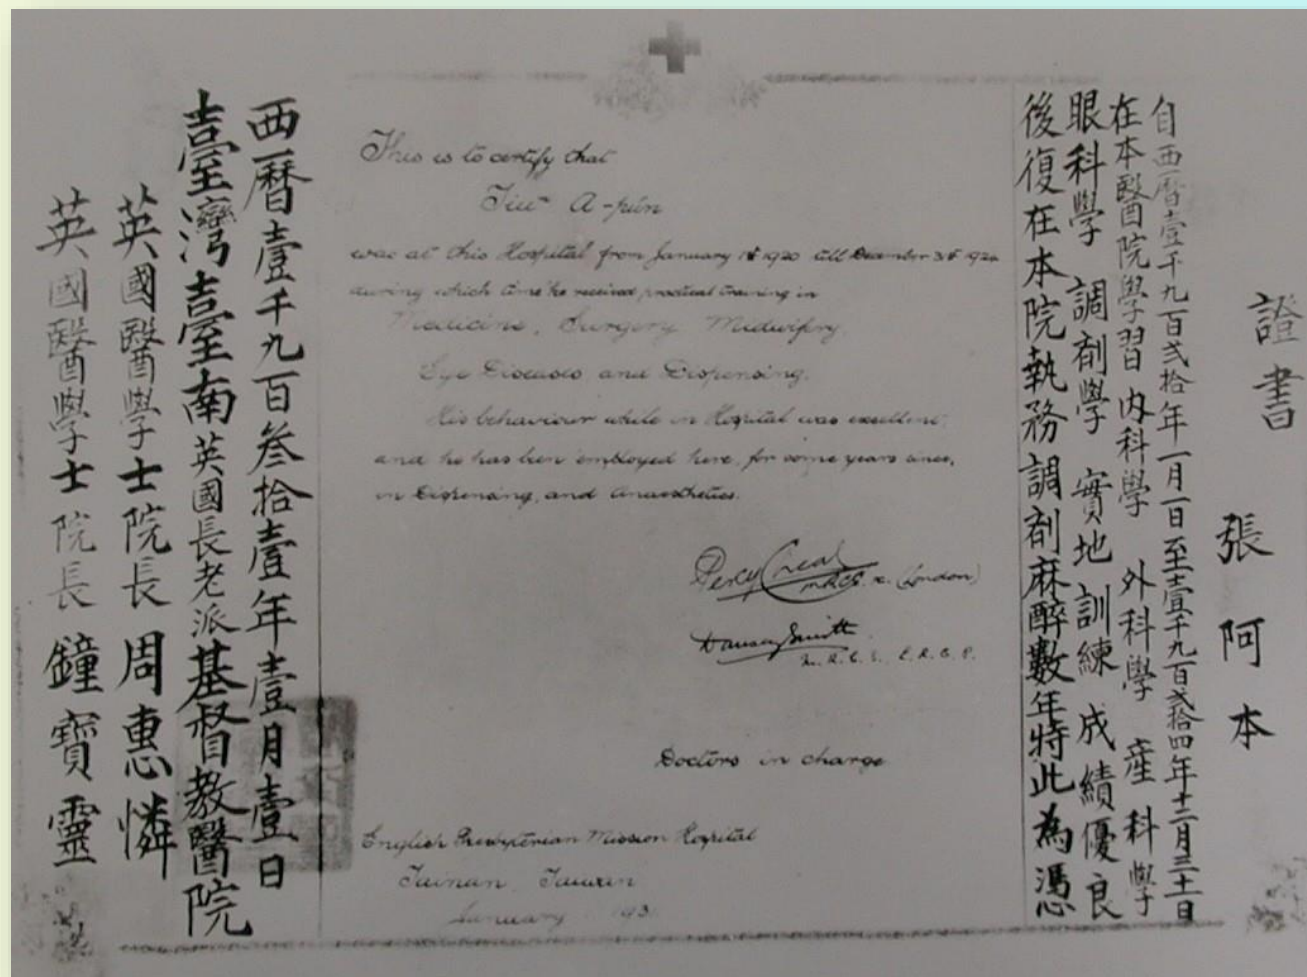 證書
張阿本
自西曆壹千九百弍拾年一月一日至壹千九百弍拾四年十二月三十一日
在本醫院學習內科學 外科學 產科學
眼科學 調剤學 實地訓練 成績優良
後復在本院執務調剤麻醉數年特此為憑
This is to certify that
Tiuⁿ A-pún
was at this Hospital from January 1st 1920 till December 31st 1924
during which time he received practical training in
Medicine, Surgery Midwifery
Eye Diseases, and Dispensing.
His behaviour while in Hospital was excellent,
and he has been employed here, for some years since,
in Dispensing, and Anaesthetics.
Percy Cheal
M.R.C.S. (London)
Smith
M.R.C.S. L.R.C.P.
Doctors in charge
English Presbyterian Mission Hospital
Tainan Taiwan
January 193
西曆壹千九百叁拾壹年壹月壹日
臺灣臺南英國長老派基督教醫院
英國醫學士院長 周惠憐
英國醫學士院長 鐘寶靈